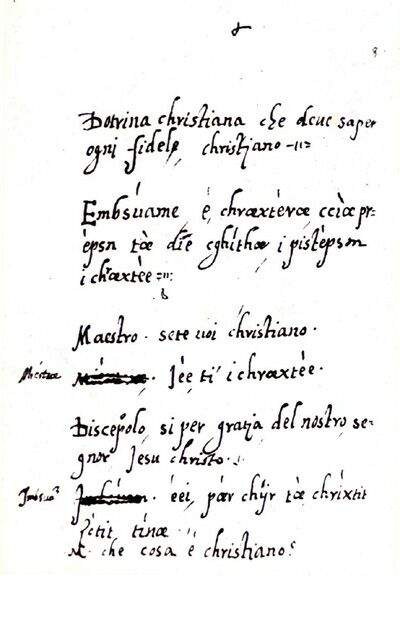 Dotrina christiana che deue saper
ogni fidele christiano
Embsúame é, chræxtéræ ccia pr-
épsn tæ díe cghíthæ i pistépsm
i chræxtée
Maestro. sete uoi christiano.
Jée ti i chræxtée.
Discepolo, si per gratia del nostro se-
gnor Jesu christo.
éei, pær chÿr tæ chríxtit
tínæ
M. che cosa é christiano?